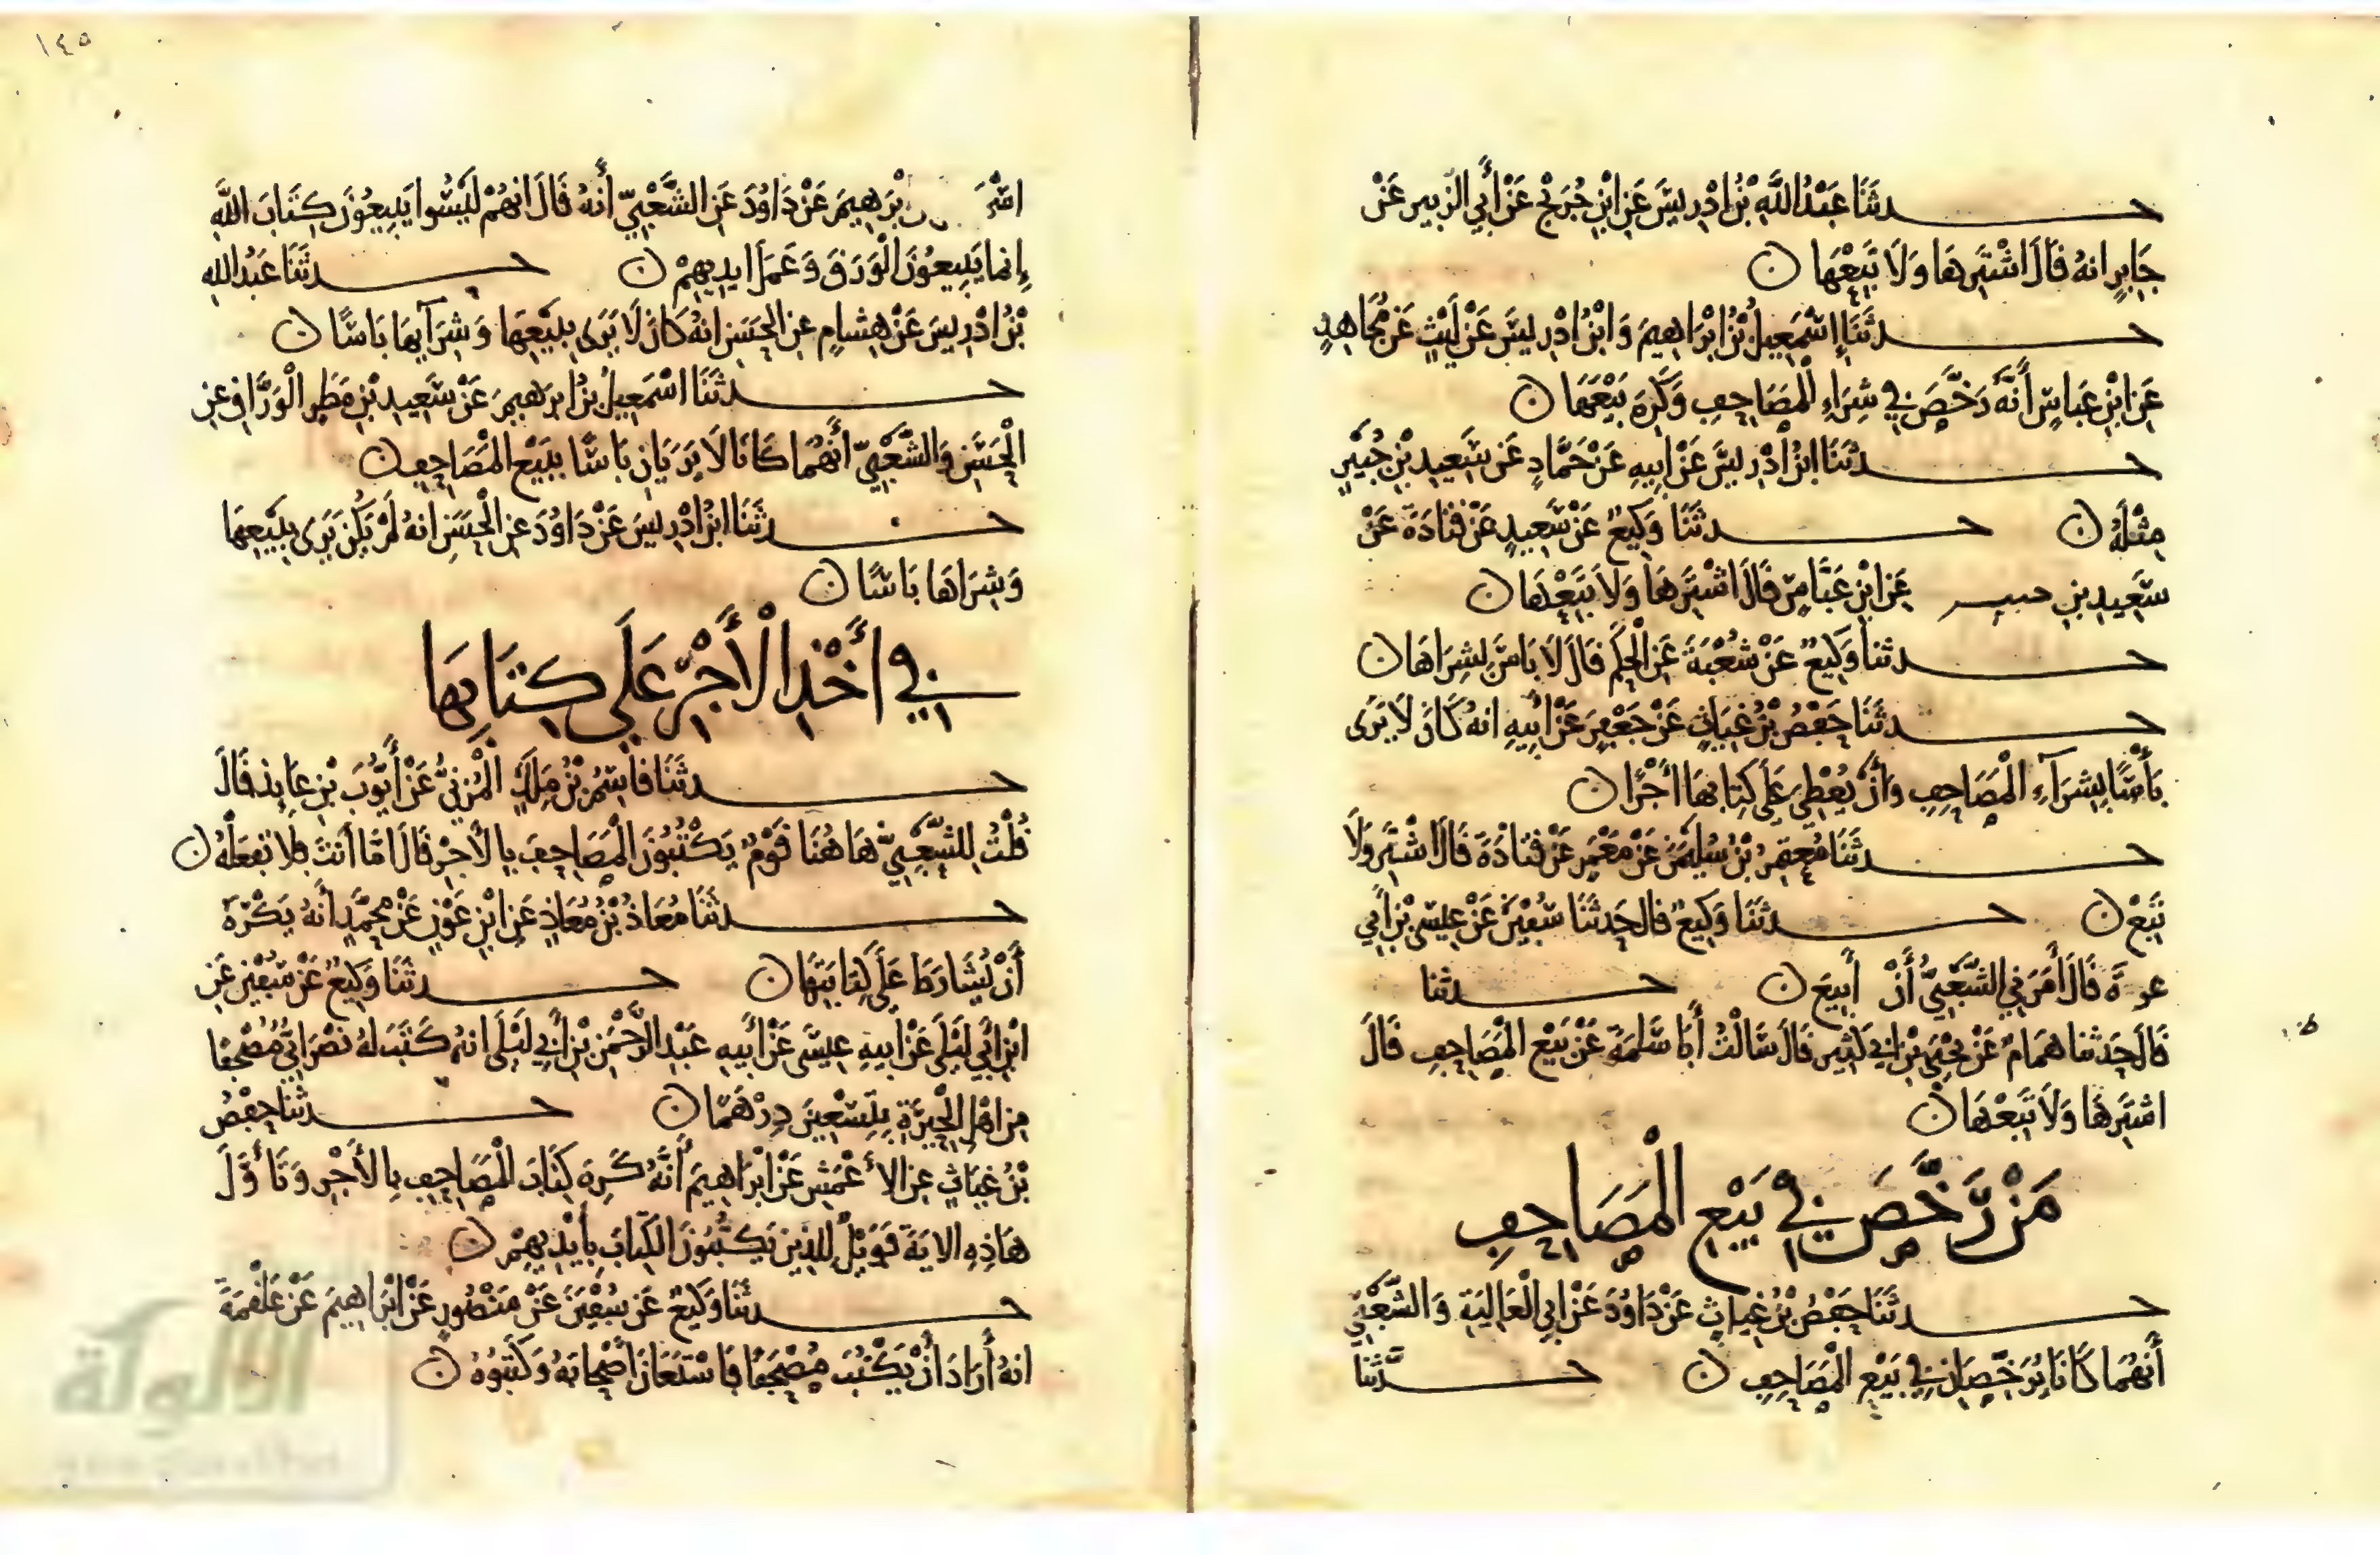 حدثنا عَبْدُ اللَّهِ بْنُ اِدْرِيسَ عَنِ ابْنِ جُرَيْجٍ عَنْ أَبِي الزُّبَيْرِ عَنْ
جَابِرٍ انهُ قَالَ اشْتَرِهَا وَلَا تَبِعْهَا ن
حدثَنَا إِسْمَعِيلُ بْنُ ابْرَاهِيمَ وَابْنُ ادْرِيسَ عَنْ لَيْثٍ عَنْ مُجَاهِدٍ
عَنِ ابْنِ عَبَاسٍ أَنَّهُ رَخَّصَ فِي شِرَاءِ الْمَصَاحِفِ وَكَرِهَ بَيْعَهَا ن
حدثَنَا ابنُ ادْرِيسَ عَنْ ابِيهِ عَنْ حَمَّادٍ عَنْ سَعِيدِ بْنِ جُبَيْرٍ
مِثْلَهُ ن حدثَنَا وَكِيعٌ عَنْ سَعِيدٍ عَنْ قَتَادَةَ عَنْ
سَعِيدِ بْنِ حبير عَنِ ابْنِ عَبَّاسٍ قَالَ اشْتَرِهَا وَلَا تَبِعْهَا ن
حدثنا وَكِيعٌ عَنْ شُعْبَةَ عَنِ الْحَكَمِ قَالَ لَا بَاسَ بِشِرَاهَا ن
حدثَنَا حَفْصُ بْنُ غِيَاثٍ عَنْ جَعْفَرٍ عَنْ ابِيهِ انهُ كَانَ لَا يَرَى
بَأْسًا بِشِرَآءِ الْمَصَاحِفِ وَأَنْ يُعْطِيَ عَلَى كِتَابِهَا أَجْرًا ن
حدثَنَا مُعْتَمِرُ بْنُ سُلَيْمَنَ عَنْ مَعْمَرٍ عَنْ قَتَادَةَ قَالَ اشْتَرِ وَلَا
تَبِعْ ن حدثَنَا وَكِيعٌ قال حَدثَنَا سُفْيَنُ عَنْ عِيسَى بْنِ أَبِي
عزة قَالَ أَمَرَنِي الشَّعْبِيُّ أَنْ أَبِيعَ ن حدثنا
قَالَ حَدثنا هَمَامٌ عَنْ يَحْيَى بْنِ ابِي كَثِيرٍ قَالَ سَالْتُ أَبَا سَلَمَةَ عَنْ بَيْعِ الْمَصَاحِفِ قَالَ
اشتَرِهَا وَلَا تَبِعْهَا ن
مَنْ رَّخَّصَ فِي بَيْعِ الْمَصَاحِفِ
حدثَنَا حَفْصُ بْنُ غِيَاثٍ عَنْ دَاوُدَ عَنْ ابِي الْعَالِيَةِ وَالشَّعْبِيِّ
أَنهُمَا كَانَا يُرَخِّصَانِ فِي بَيْعِ الْمَصَاحِفِ ن حدثنا
١٤٥
ابْرَهِيمَ عَنْ دَاوُدَ عَنِ الشَّعْبِيِّ أَنهُ قَالَ انهُمْ لَيْسُوا يَبِيعُونَ كِتَابَ اللهِ
إِنما يَبِيعُونَ الْوَرَقَ وَعَمَلَ ايدِيهِمْ ن حدثَنَا عَبْدُ اللهِ
بْنُ ادْرِيسَ عَنْ هِشَامٍ عنِ الحَسَنِ انهُ كَانَ لَا يَرَى بِبَيْعِهَا وَشِرَآيِهَا بَاسًا ن
حدثَنَا اسْمَعِيلُ بْنُ ابْرَهِيمَ عَنْ سَعِيدٍ بْنِ مَطَرٍ الْوَرَّاقِ عنِ
الْحَسَنِ وَالشَّعْبِيِّ أَنَّهُمَا كَانَا لَا يَرَيَانِ بَاسًا بِبَيْعِ الْمَصَاحِفِ ن
حدثَنَا ابنُ ادْرِيسَ عَنْ دَاوُدَ عنِ الْحَسَنِ انهُ لَمْ يَكُنْ يَرَى بِبَيْعِهَا
وَشِرَاهَا بَاسًا ن
فِي أَخْذِ الْأَجْرِ عَلَى كِتَابِهَا
حدثَنَا قَاسِمُ بْنُ مَلِكٍ الْمُزَنِيُّ عَنْ أَيُّوبَ بْنِ عَايِذٍ قَالَ
قُلْتُ لِلشَّعْبِيِّ هَا هُنَا قَوْمٌ يَكْتُبُونَ الْمَصَاحِفَ بِالْأَجْرِ قَالَ امَّا أَنتَ فَلَا تَفعَلْهُ ن
حدثَنَا مُعَاذُ بْنُ مُعَاذٍ عَنِ ابْنِ عَوْنٍ عَنْ مُحَمَّدٍ أَنهُ يَكْرَهُ
أَنْ يُشَارَطَ عَلَى كِتَابَتِهَا ن حدثَنَا وَكِيعٌ عَنْ سُفْيَنَ عَنِ
ابْنِ أَبِي لَيْلَى عَنْ أَبِيهِ عِيسَى عَنْ أَبِيهِ عَبْدِ الرَّحْمَنِ بْنِ أَبِي لَيْلَى انهُ كَتَبَ لهُ نَصْرَانِيٌّ مُصْحَفًا
مِن اهْلِ الْحِيرَةِ بِتِسْعِينَ دِرْهَمًا ن حدثنا حَفْصُ
بْنُ غِيَاثٍ عنِ الأَعْمَشِ عَنْ ابْرَاهِيمَ أَنَّهُ كَرِهَ كِتَابَ الْمَصَاحِفِ بِالْأَجْرِ وَتَأَوَّلَ
هَاذِهِ الايَةَ فَوَيْلٌ لِلذِينَ يَكْتُبُونَ الْكِتَابَ بِأَيْدِيهِمْ ن
حدثَنَا وَكِيعٌ عَنْ سُفْيَنَ عَنْ مَنْصُورٍ عَنْ ابْرَاهِيمَ عَنْ عَلْقَمَةَ
انهُ أَرَادَ أَنْ يَكْتُبَ مُصْحَفًا فَاسْتَعَانَ أَصْحَابَهُ وَكَتَبُوهُ ن
الألوكة